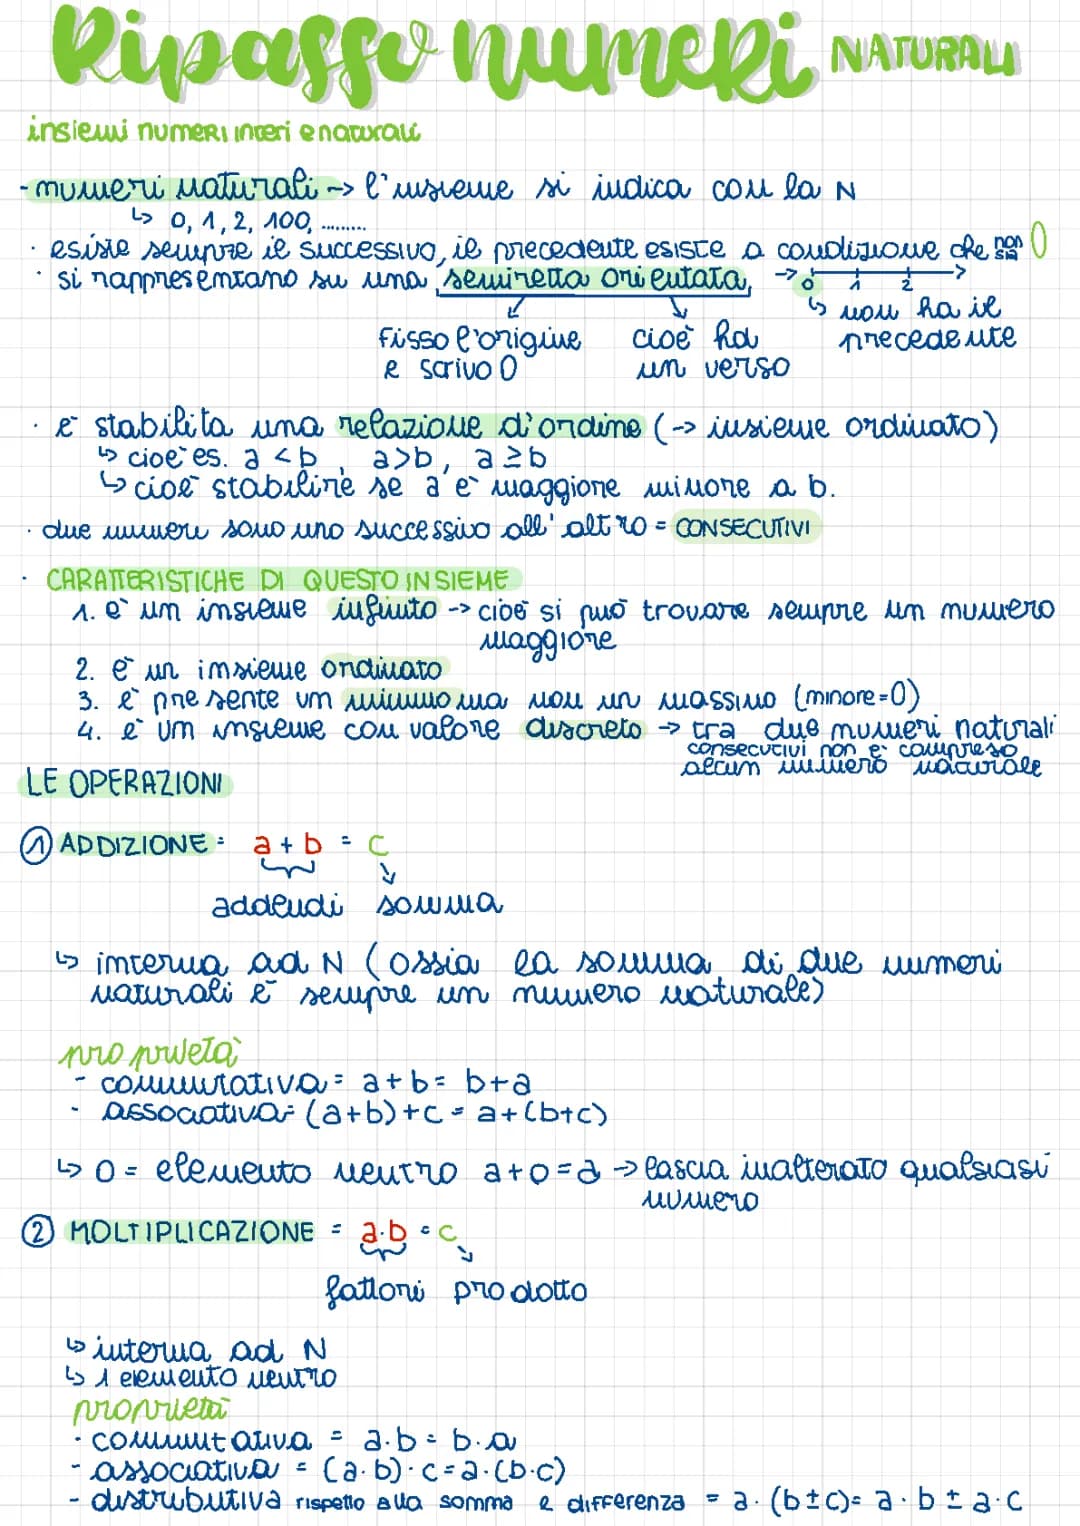 Ripasso numeri NATURALI
insiemi numeri interi e naturali
- numeri naturali -> l'insieme si indica con la N
↳ 0, 1, 2, 100, .........
· esiste sempre il successivo, il precedente esiste a condizione che non sia 0
· si rappresentano su una semiretta orientata, -> 0 1 2
↳ non ha il precedente
fisso l'origine e scrivo 0
cioè ha un verso
· è stabilita una relazione d'ordine (-> insieme ordinato)
↳ cioè es. a < b, a > b, a ≥ b
↳ cioè stabilire se a è maggiore minore a b.
· due numeri sono uno successivo all'altro = CONSECUTIVI
· CARATTERISTICHE DI QUESTO INSIEME
1. è un insieme infinito -> cioè si può trovare sempre un numero
maggiore
2. è un insieme ordinato
3. è presente un minimo ma non un massimo (minore=0)
4. è un insieme con valore discreto -> tra due numeri naturali
consecutivi non è compreso
alcun numero naturale
LE OPERAZIONI
① ADDIZIONE = a + b = c
addendi somma
↳ interna ad N (ossia la somma di due numeri
naturali è sempre un numero naturale)
proprietà
- commutativa = a+b = b+a
- associativa = (a+b)+c = a+(b+c)
↳ 0 = elemento neutro a+0=a -> lascia inalterato qualsiasi
numero
② MOLTIPLICAZIONE = a·b = c
fattori prodotto
↳ interna ad N
↳ 1 elemento neutro
proprietà
· commutativa = a·b = b·a
- associativa = (a·b)·c = a·(b·c)
- distributiva rispetto alla somma e differenza = a·(b±c)= a·b ± a·c